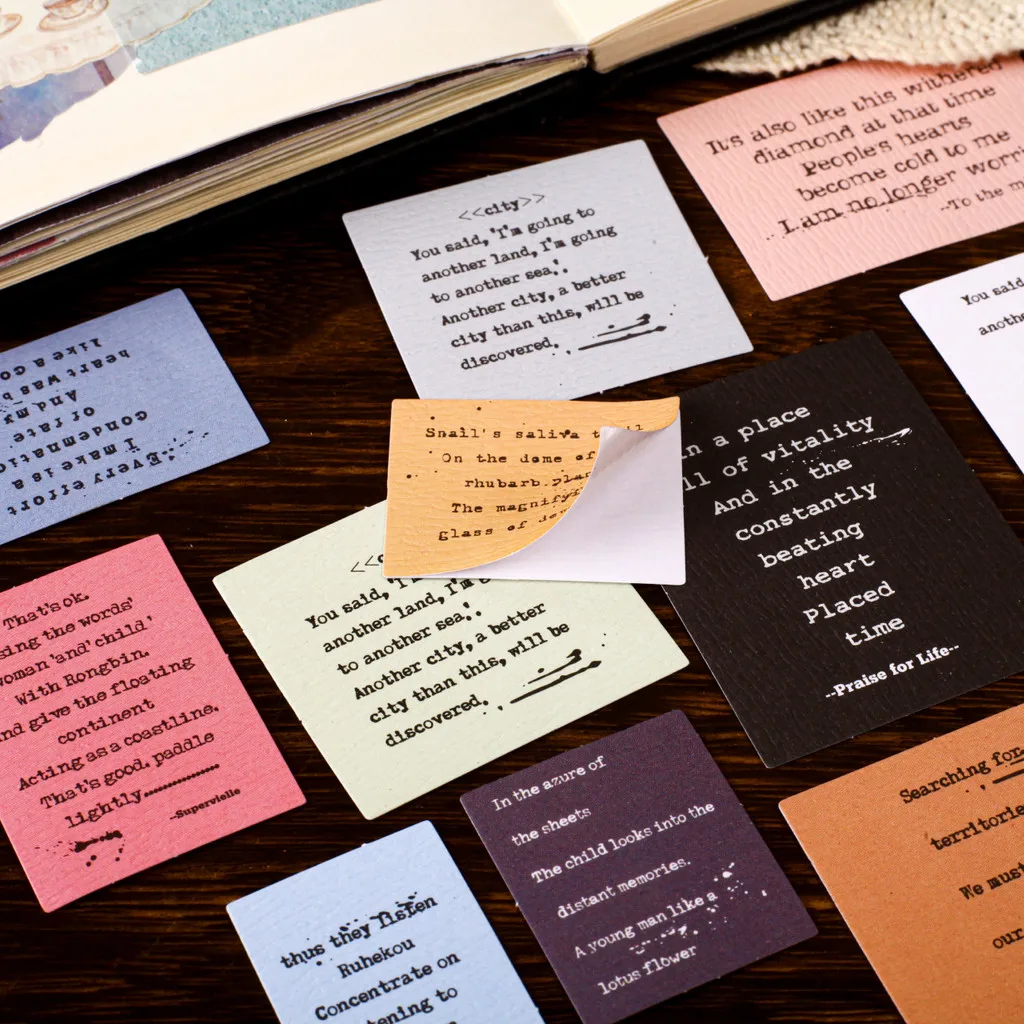 It's also like this withered
diamond at that time
People's hearts
become cold to me
I am no longer
--To the
<<city>>
You said, 'I'm going to
another land, I'm going
to another sea.'.
Another city, a better
city than this, will be
discovered.
You said
Every effort
I make is a
condemnation
of fate
And my
heart was
like a
Snail's saliva
On the dome of
rhubarb
The
Glass of
in a place
of vitality
And in the
constantly
beating
heart
Placed
time
--Praise for Life--
You said,
another land, I'm
to another sea.'.
Another city, a better
city than this, will be
discovered.
That's ok.
the words'
'and' child'
With Rongbin.
and give the floating
continent
Acting as a coastline.
That's good. paddle
lightly...............
--Supervielle
In the azure of
the sheets
The child looks into the
distant memories.
A young man like a
lotus flower
Searching for
We must
our
thus they listen
Ruhekou
Concentrate on
to